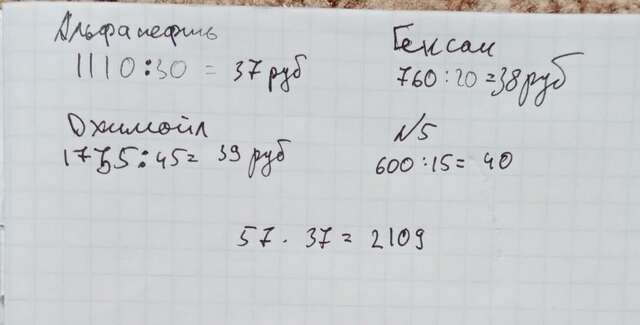 Альфапефть
1110:30 = 37 руб
Гексан
760:20=38 руб
Охимойл
1755:45= 39 руб
№5
600:15= 40
57 · 37 = 2109